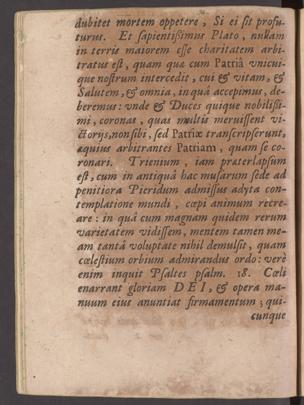 dubitet mortem oppetere, Si ei sit profu-
turus. Et sapientißimus Plato, nullam
in terris maiorem esse charitatem arbi-
tratus est, quam quæ cum Patriâ vnicui-
que nostrum intercedit, cui & vitam, &
Salutem, & omnia, in quâ accepimus, de-
beremus: vnde & Duces quique nobilißi-
mi, coronas, quas multis meruissent vi-
ctorijs, non sibi, sed Patriæ transcripserunt,
æquius arbitrantes Patriam, quam se co-
ronari. Trienium, iam præterlapsum
est, cum in antiquâ hac musarum sede ad
penitiora Pieridum admissus adyta con-
templatione mundi, cœpi animum recre-
are: in quâ cum magnam quidem rerum
varietatem vidissem, mentem tamen me-
am tantâ voluptate nihil demulsit, quam
cœlestium orbium admirandus ordo: verè
enim inquit Psaltes psalm. 18. Cœli
enarrant gloriam DEI, & opera ma-
nuum eius anuntiat firmamentum; qui-
cunque